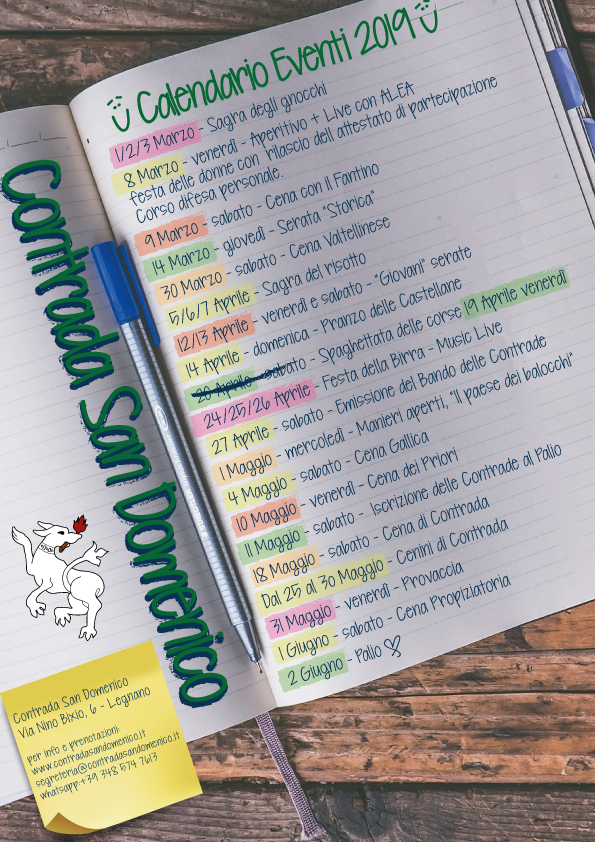 Calendario Eventi 2019
1/2/3 Marzo - Sagra degli gnocchi
8 Marzo - venerdì - Aperitivo + Live con ALEA
festa delle donne con rilascio dell attestato di partecipazione
Corso difesa personale.
9 Marzo - sabato - Cena con il Fantino
14 Marzo - giovedì - Serata "Storica"
30 Marzo - sabato - Cena Valtellinese
5/6/7 Aprile - Sagra del risotto
12/13 Aprile - venerdì e sabato - "Giovani" serate
14 Aprile - domenica - Pranzo delle Castellane
20 Aprile - sabato - Spaghettata delle corse 19 Aprile venerdì
24/25/26 Aprile - Festa della Birra - Music Live
27 Aprile - sabato - Emissione del Bando delle Contrade
1 Maggio - mercoledì - Manieri aperti, "Il paese dei balocchi"
4 Maggio - sabato - Cena Gallica
10 Maggio - venerdì - Cena dei Priori
11 Maggio - sabato - Iscrizione delle Contrade al Palio
18 Maggio - sabato - Cena di Contrada
Dal 25 al 30 Maggio - Cenini di Contrada
31 Maggio - venerdì - Provaccia
1 Giugno - sabato - Cena Propiziatoria
2 Giugno - Palio
Contrada San Domenico
Contrada San Domenico
Via Nino Bixio, 6 - Legnano
per info e prenotazioni:
www.contradasandomenico.it
segreteria@contradasandomenico.it
whatsapp:+39 348 574 7613